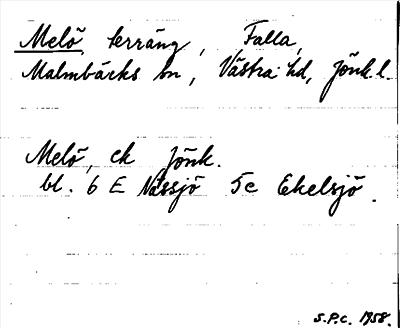 Melö, terräng, Falla,
Malmbäcks sn, Västra hd, Jönk. l.
Melö, ek Jönk.
bl. 6 E Nässjö 5c Ekelsjö.
S.P.C. 1958.